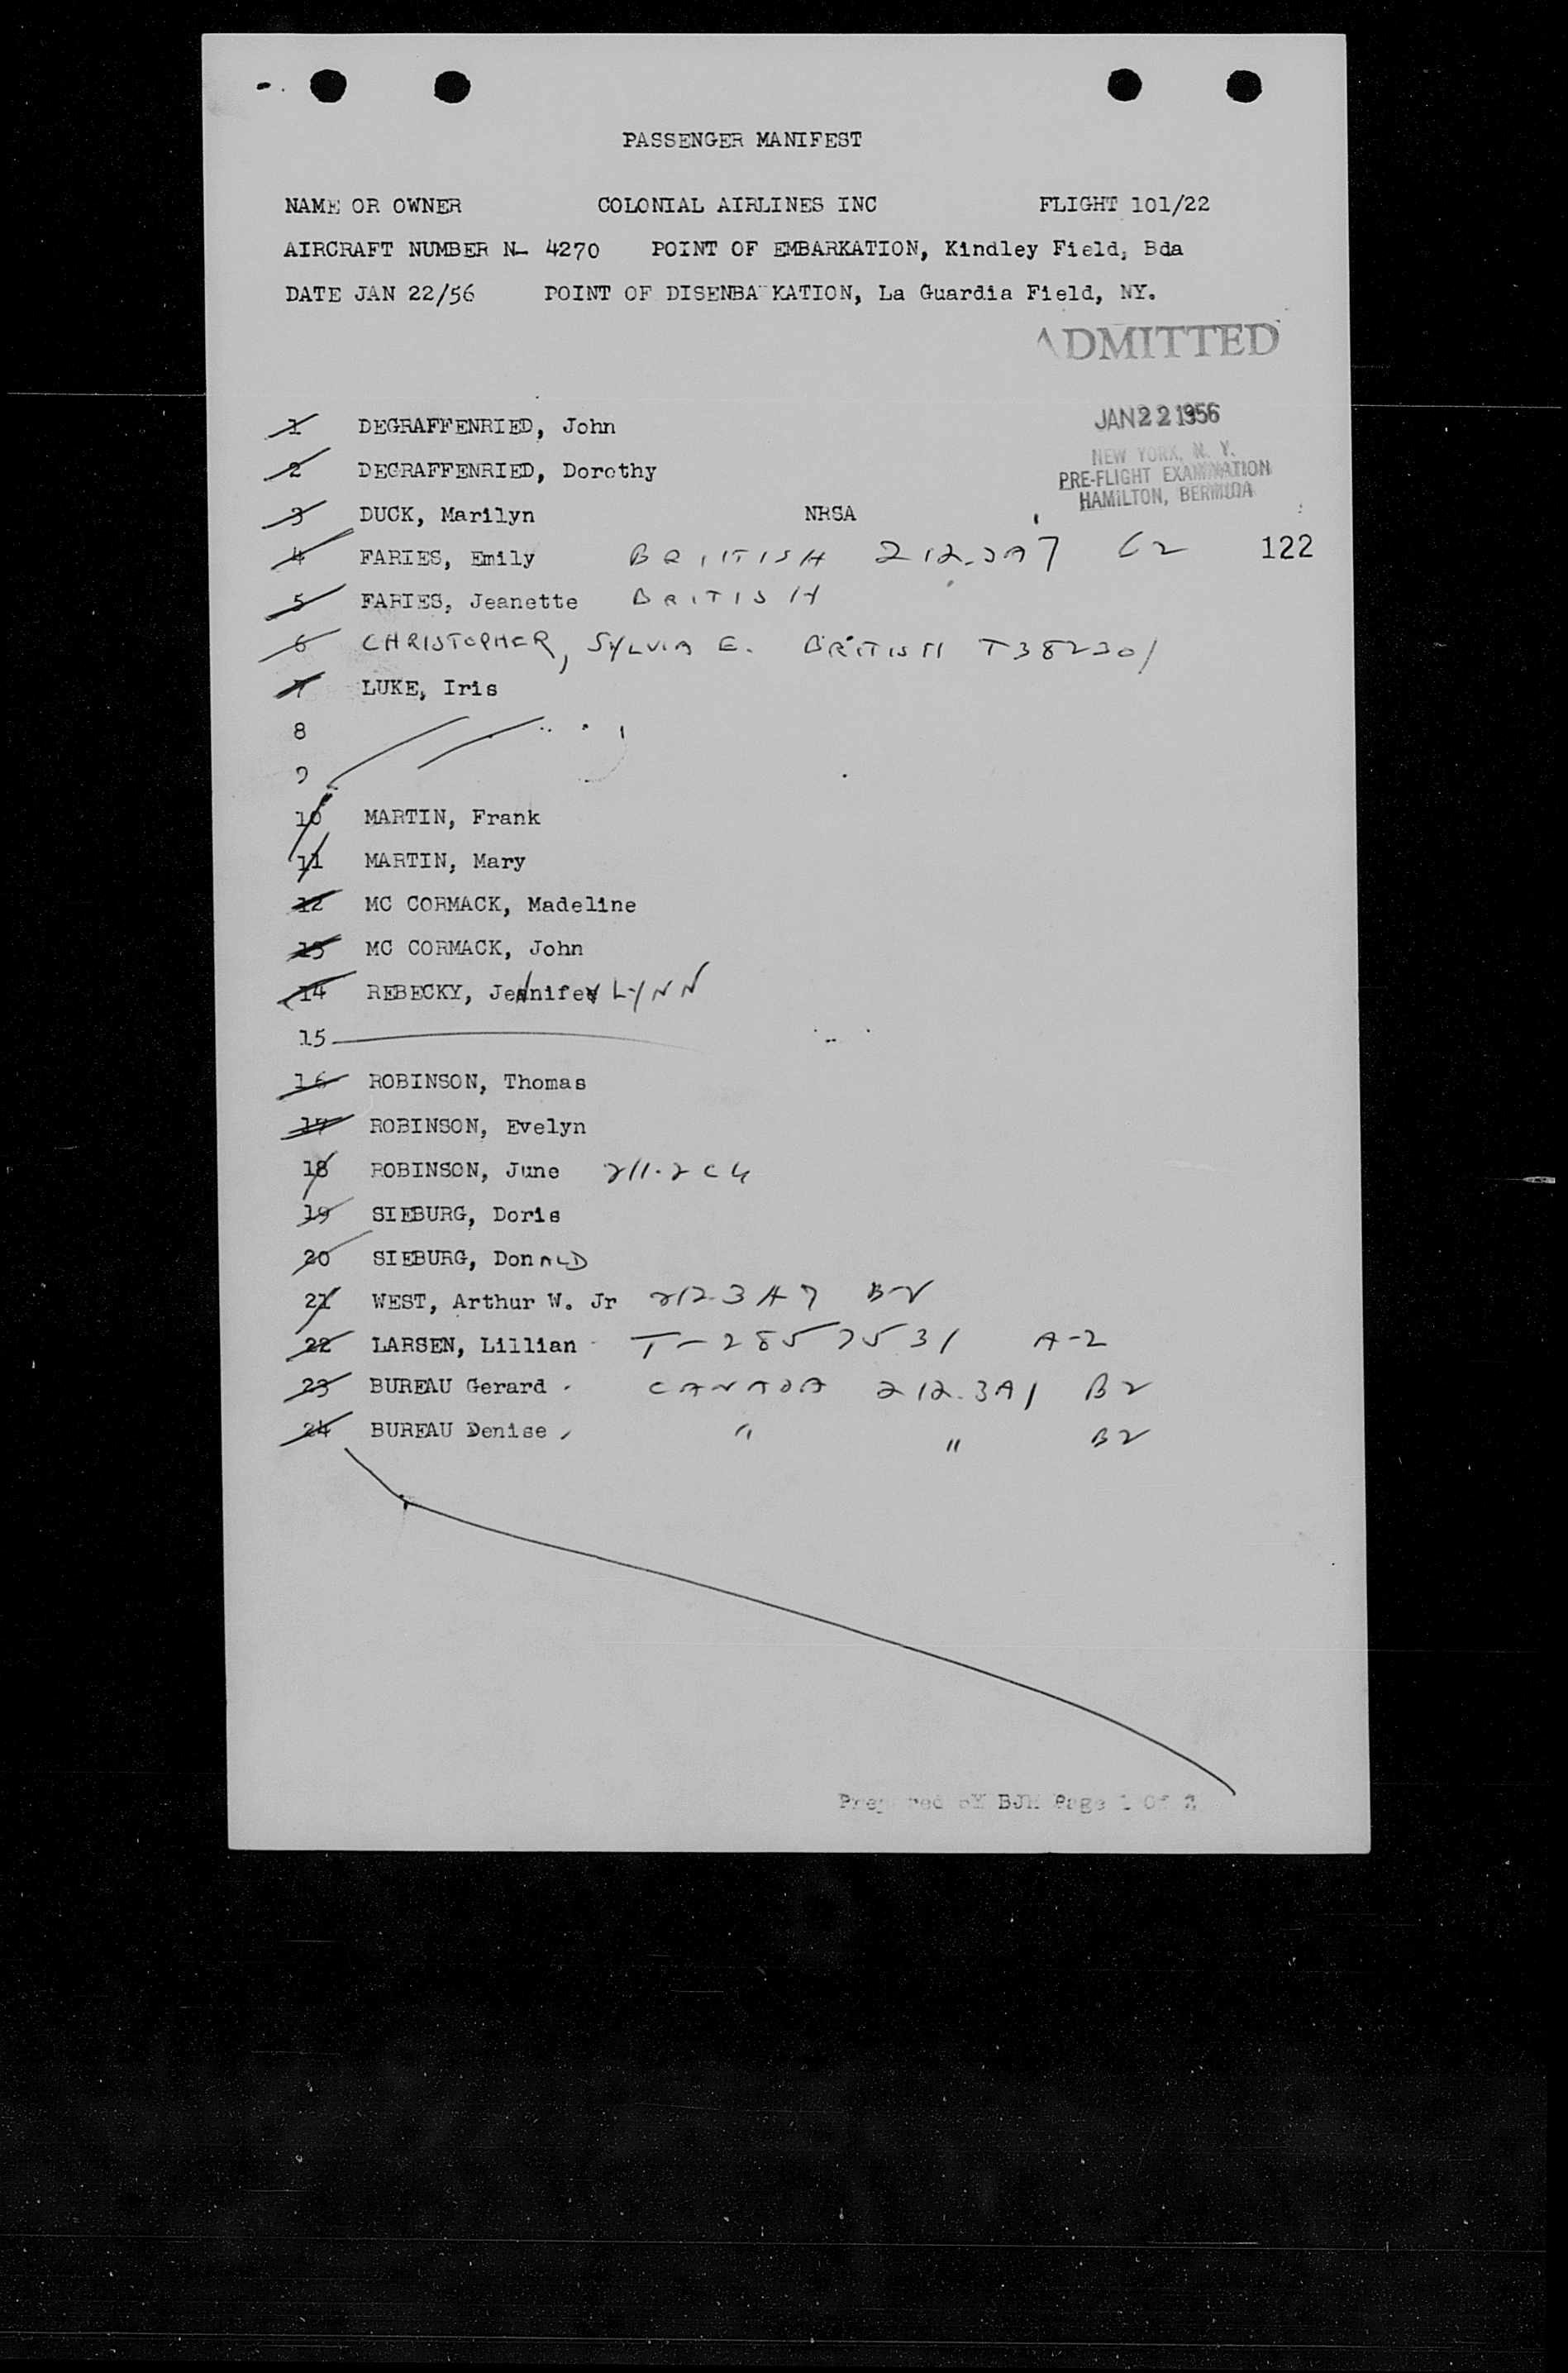 PASSENGER MANIFEST
NAME OR OWNER COLONIAL AIRLINES INC FLIGHT 101/22
AIRCRAFT NUMBER N- 4270 POINT OF EMBARKATION, Kindley Field, Bda
DATE JAN 22/56 POINT OF DISENBA KATION, La Guardia Field, NY.
ADMITTED
JAN 22 1956
NEW YORK, N. Y.
PRE-FLIGHT EXAMINATION
HAMILTON, BERMUDA
1 DEGRAFFENRIED, John
2 DEGRAFFENRIED, Dorothy
3 DUCK, Marilyn NRSA
4 FARIES, Emily BRITISH 212.3A7 C2 122
5 FARIES, Jeanette BRITISH
6 CHRISTOPHER, SYLVIA E. BRITISH T382301
7 LUKE, Iris
8
9
10 MARTIN, Frank
11 MARTIN, Mary
12 MC CORMACK, Madeline
13 MC CORMACK, John
14 REBECKY, Jennifer LYNN
15
16 ROBINSON, Thomas
17 ROBINSON, Evelyn
18 ROBINSON, June 211.2C4
19 SIEBURG, Doris
20 SIEBURG, DonALD
21 WEST, Arthur W. Jr 212.3A7 B2
22 LARSEN, Lillian T-2857531 A-2
23 BUREAU Gerard CANADA 212.3A1 B2
24 BUREAU Denise " " B2
Prepared BY BJM Page 1 Of 2